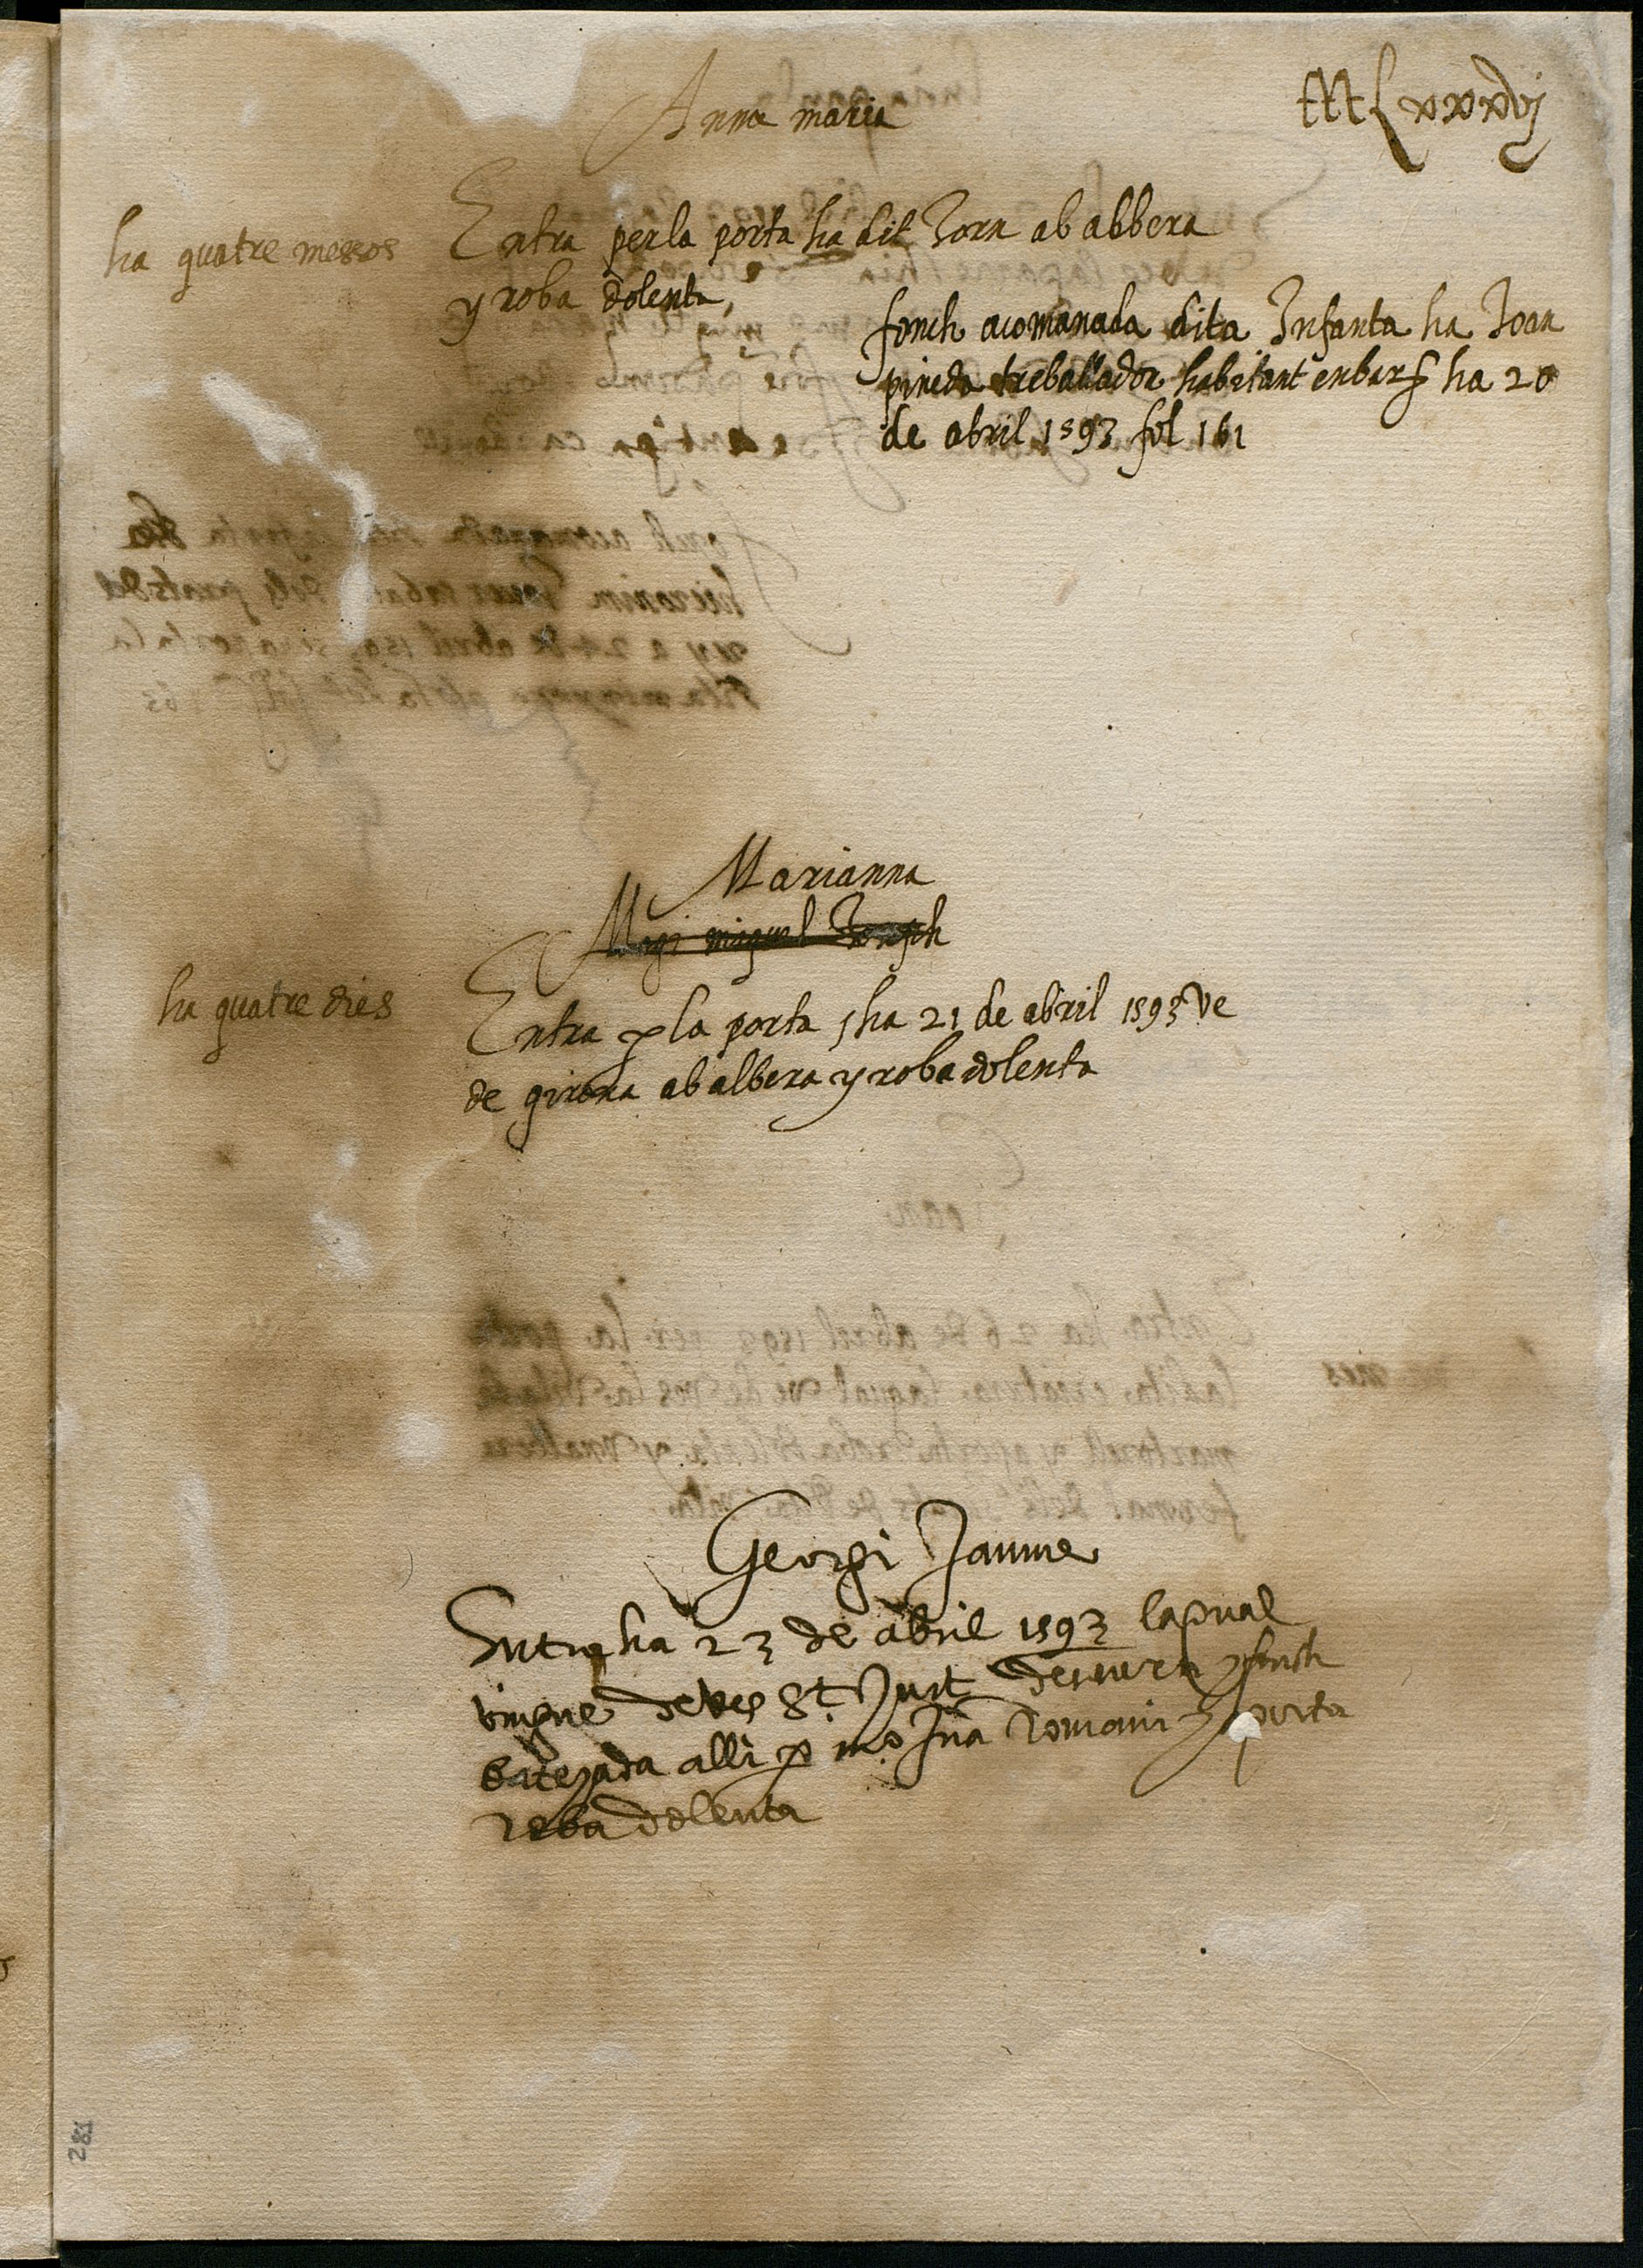 Anna maria
ha quatre messos
Entra per la porta ha dit Jorn ab albera
y roba dolenta,
fonch acomanada dita Infanta ha Joan
pineda treballador habitant en bar^a ha 20
de abril 1593 fol 161
Marianna
Magi miquel Joseph
ha quatre dies
Entra p la porta ha 21 de abril 1593 ve
de girona ab albera y roba dolenta
Georgi Jaume
Entra ha 23 de abril 1593 laqual
vingue de ves St. Just desvern y fonch
batejada alli p mº Jua Romani y porta
roba dolenta
281